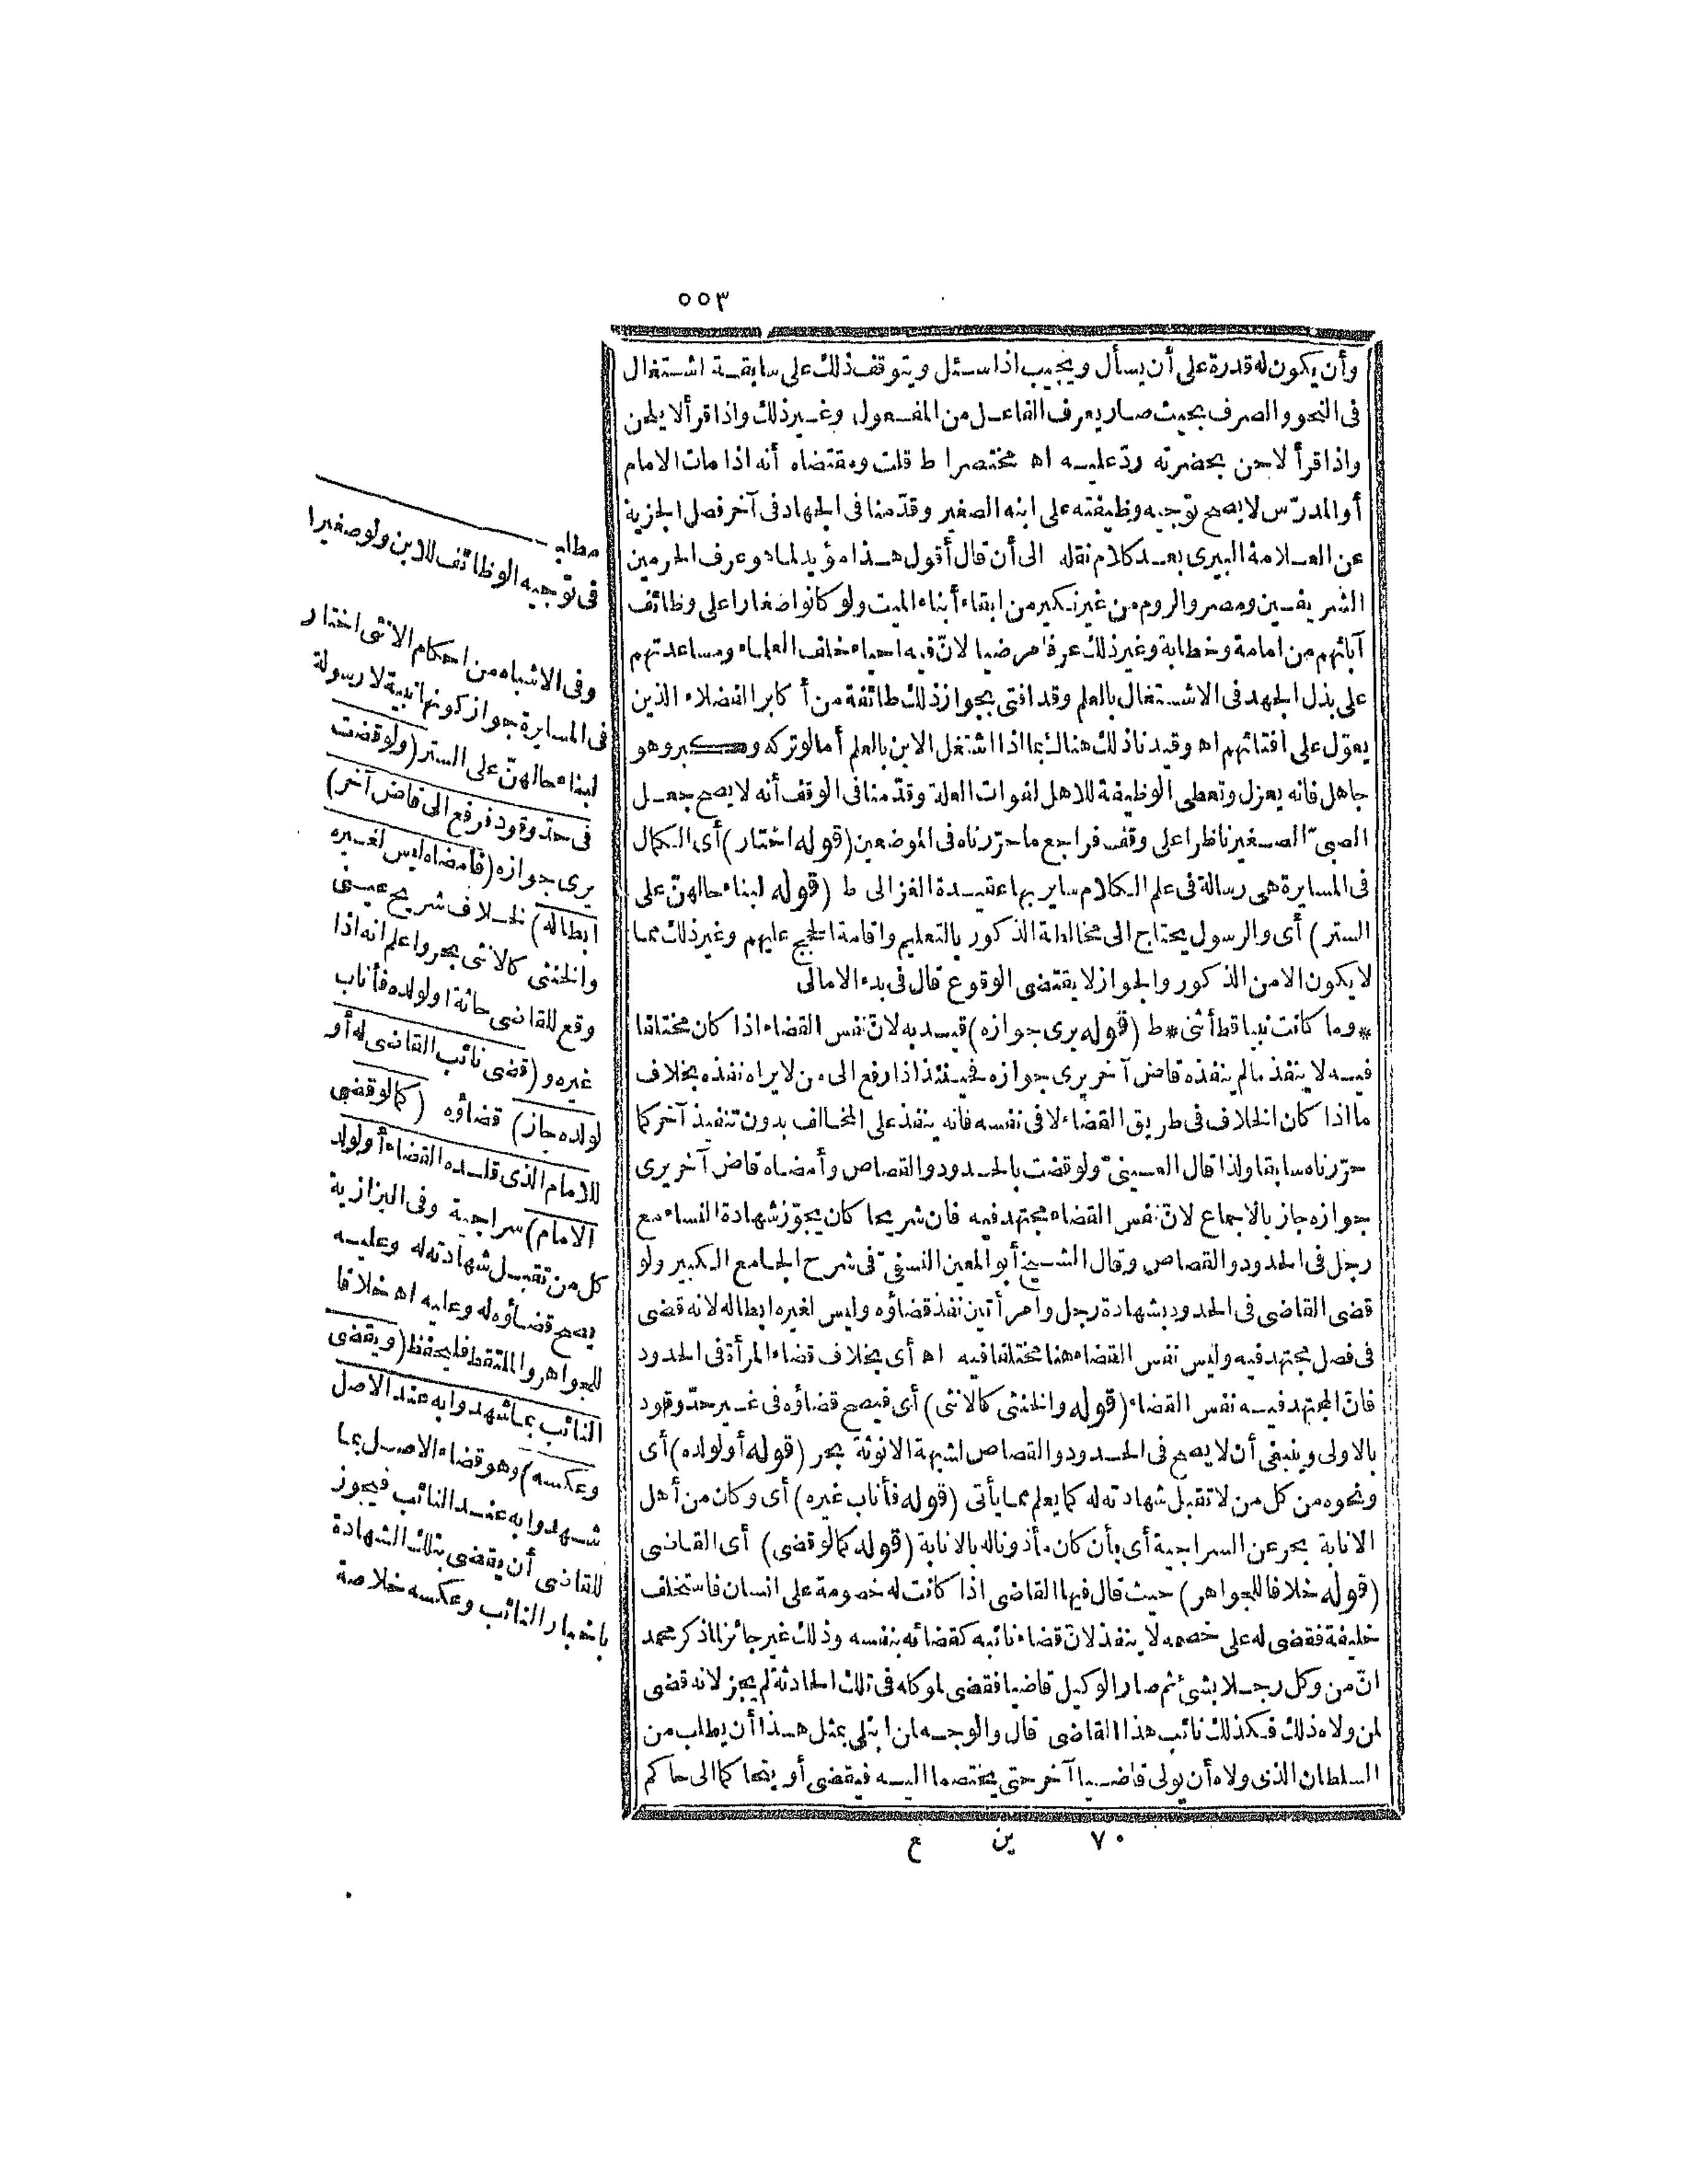 ٥٥٣
وأن يكون له قدرة على أن يسأل ويجيب اذا سئل ويتوقف ذلك على سابقة اشتغال
فى النحو والصرف بحيث صار يعرف الفاعل من المفعول وغير ذلك واذا قرأ لا يلحن
واذا قرأ لاحن بحضرته ردّ عليه اه مختصرا ط قلت ومقتضاه أنه اذا مات الامام
أو المدرّس لا يصح توجيه وظيفته على ابنه الصغير وقدّمنا فى الجهاد فى آخر فصل الجزية
عن العلامة البيرى بعد كلام نقله الى أن قال أقول هذا مؤيد لما هو عرف الحرمين
الشريفين ومصر والروم من غير نكير من ابقاء أبناء الميت ولو كانوا صغارا على وظائف
آبائهم من امامة وخطابة وغير ذلك عرفا مرضيا لانّ فيه احياء خلف العلماء ومساعدتهم
على بذل الجهد فى الاشتغال بالعلم وقد افتى بجواز ذلك طائفة من أكابر الفضلاء الذين
يعوّل على افتائهم اه وقيدنا ذلك هناك بما اذا اشتغل الابن بالعلم أما لو تركه وكبر وهو
جاهل فانه يعزل وتعطى الوظيفة للاهل لفوات العلة وقدّمنا فى الوقف أنه لا يصح جعل
الصبىّ الصغير ناظرا على وقف فراجع ما حرّرناه فى الموضعين (قوله اختار) أى الكمال
فى المسايرة هى رسالة فى علم الكلام ساير بها عقيدة الغزالى ط (قوله لبناء حالهنّ على
الستر) أى والرسول يحتاج الى مخالطة الذكور بالتعليم واقامة الحجج عليهم وغير ذلك مما
لا يكون الا من الذكور والجواز لا يقتضى الوقوع قال فى بدء الامالى
*وما كانت نبيا قط أنثى* ط (قوله يرى جوازه) قيد به لانّ نفس القضاء اذا كان مختلفا
فيه لا ينفذ ما لم ينفذه قاض آخر يرى جوازه فحينئذ اذا رفع الى من لا يراه نفذه بخلاف
ما اذا كان الخلاف فى طريق القضاء لا فى نفسه فانه ينفذ على المخالف بدون تنفيذ آخر كما
حرّرناه سابقا ولذا قال العينىّ ولو قضت بالحدود والقصاص وأمضاه قاض آخر يرى
جوازه جاز بالاجماع لانّ نفس القضاء مجتهد فيه فان شريحا كان يجوّز شهادة النساء مع
رجل فى الحدود والقصاص وقال الشيخ أبو المعين النسفىّ فى شرح الجامع الكبير ولو
قضى القاضى فى الحدود بشهادة رجل وامرأتين نفذ قضاؤه وليس لغيره ابطاله لانه قضى
فى فصل مجتهد فيه وليس نفس القضاء هنا مختلفا فيه اه أى بخلاف قضاء المرأة فى الحدود
فانّ المجتهد فيه نفس القضاء (قوله والخنثى كالانثى) أى فيصح قضاؤه فى غير حدّ وقود
بالاولى وينبغى أن لا يصح فى الحدود والقصاص لشبهة الانوثة بحر (قوله أو لولده) أى
ونحوه من كل من لا تقبل شهادته له كما يعلم مما يأتى (قوله فأناب غيره) أى وكان من أهل
الانابة بحر عن السراجية أى بأن كان مأذونا له بالانابة (قوله كما لو قضى) أى القاضى
(قوله خلافا للجواهر) حيث قال فيها القاضى اذا كانت له خصومة على انسان فاستخلف
خليفة فقضى له على خصمه لا ينفذ لانّ قضاء نائبه كقضائه بنفسه وذلك غير جائز لما ذكر محمد
انّ من وكل رجلا بشئ ثم صار الوكيل قاضيا فقضى لموكله فى تلك الحادثة لم يجز لانه قضى
لمن ولاه ذلك فكذلك نائب هذا القاضى قال والوجه لمن ابتلى بمثل هذا أن يطلب من
السلطان الذى ولاه أن يولى قاضيا آخر حتى يختصما اليه فيقضى أو يتحاكما الى حاكم
٧٠ ين ع
مطلب
فى توجيه الوظائف للابن ولو صغيرا
وفى الاشباه من احكام الانثى اختار
فى المسايرة جواز كونها نبية لا رسولة
لبناء حالهنّ على الستر (ولو قضت
فى حدّ وقود فرفع الى قاض آخر)
يرى جوازه (فأمضاه ليس لغيره
ابطاله) لخلاف شريح عينى
والخنثى كالانثى بحر واعلم انه اذا
وقع للقاضى حادثة او لولده فأناب
غيره و (قضى نائب القاضى له أو
لولده جاز) قضاؤه (كما لو قضى
للامام الذى قلده القضاء أو لولد
الامام) سراجية وفى البزازية
كل من تقبل شهادته له وعليه
يصح قضاؤه له وعليه اه خلافا
للجواهر والملتقط فليحفظ (ويقضى
النائب بما شهدوا به عند الاصل
وعكسه) وهو قضاء الاصل بما
شهدوا به عند النائب فيجوز
للقاضى أن يقضى بتلك الشهادة
باخبار النائب وعكسه خلاصة